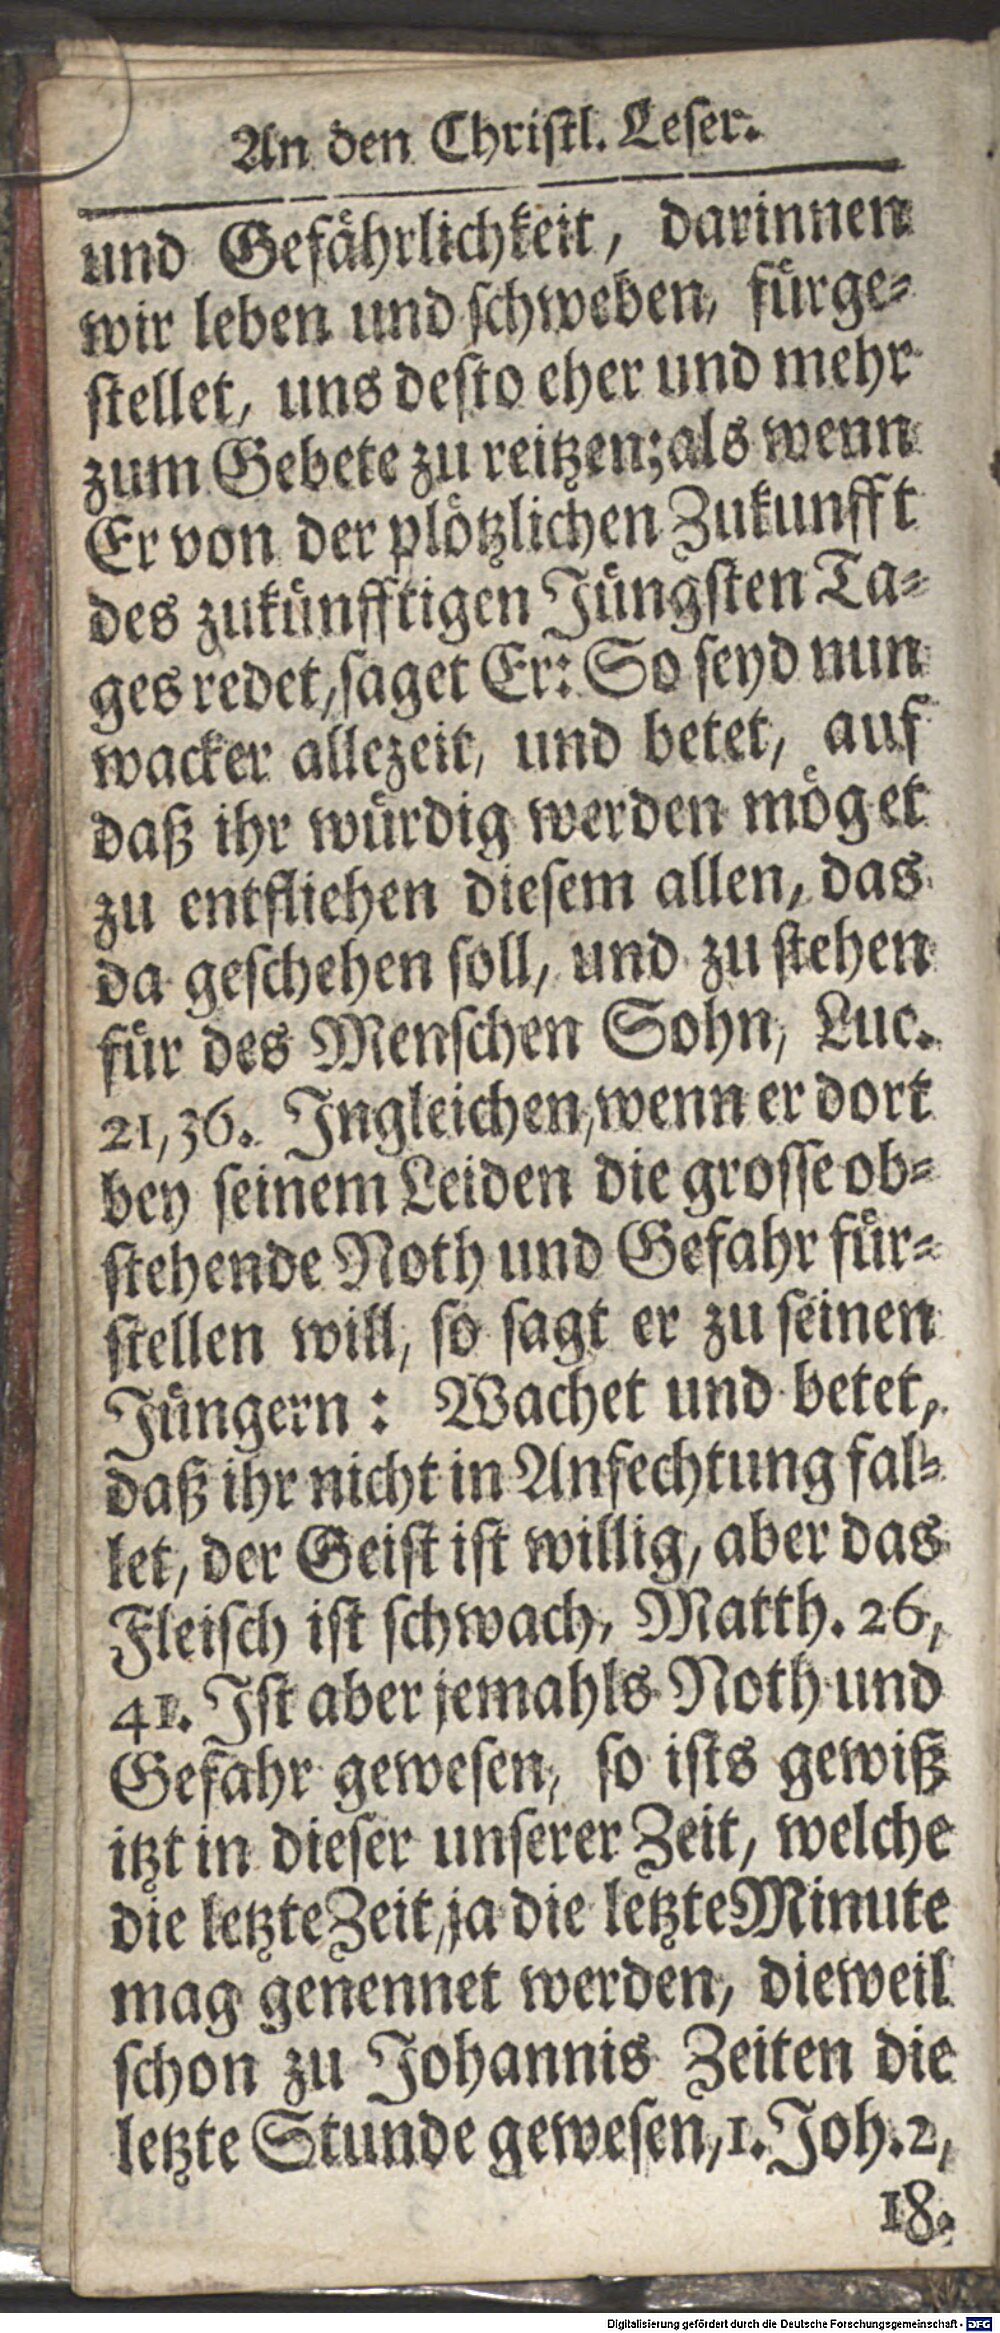 An den Christl. Leser.
und Gefährlichkeit, darinnen
wir leben und schweben, fürge-
stellet, uns desto eher und mehr
zum Gebete zu reitzen; als wenn
Er von der plötzlichen Zukunfft
des zukünfftigen Jüngsten Ta-
ges redet, saget Er: So seyd nun
wacker allezeit, und betet, auf
daß ihr würdig werden möget
zu entfliehen diesem allen, das
da geschehen soll, und zu stehen
für des Menschen Sohn, Luc.
21, 36. Ingleichen, wenn er dort
bey seinem Leiden die grosse ob-
stehende Noth und Gefahr für-
stellen will, so sagt er zu seinen
Jüngern: Wachet und betet,
daß ihr nicht in Anfechtung fal-
let, der Geist ist willig, aber das
Fleisch ist schwach, Matth. 26,
41. Ist aber jemahls Noth und
Gefahr gewesen, so ists gewiß
itzt in dieser unserer Zeit, welche
die letzte Zeit, ja die letzte Minute
mag genennet werden, dieweil
schon zu Johannis Zeiten die
letzte Stunde gewesen, 1. Joh. 2,
18.
Digitalisierung gefördert durch die Deutsche Forschungsgemeinschaft - DFG